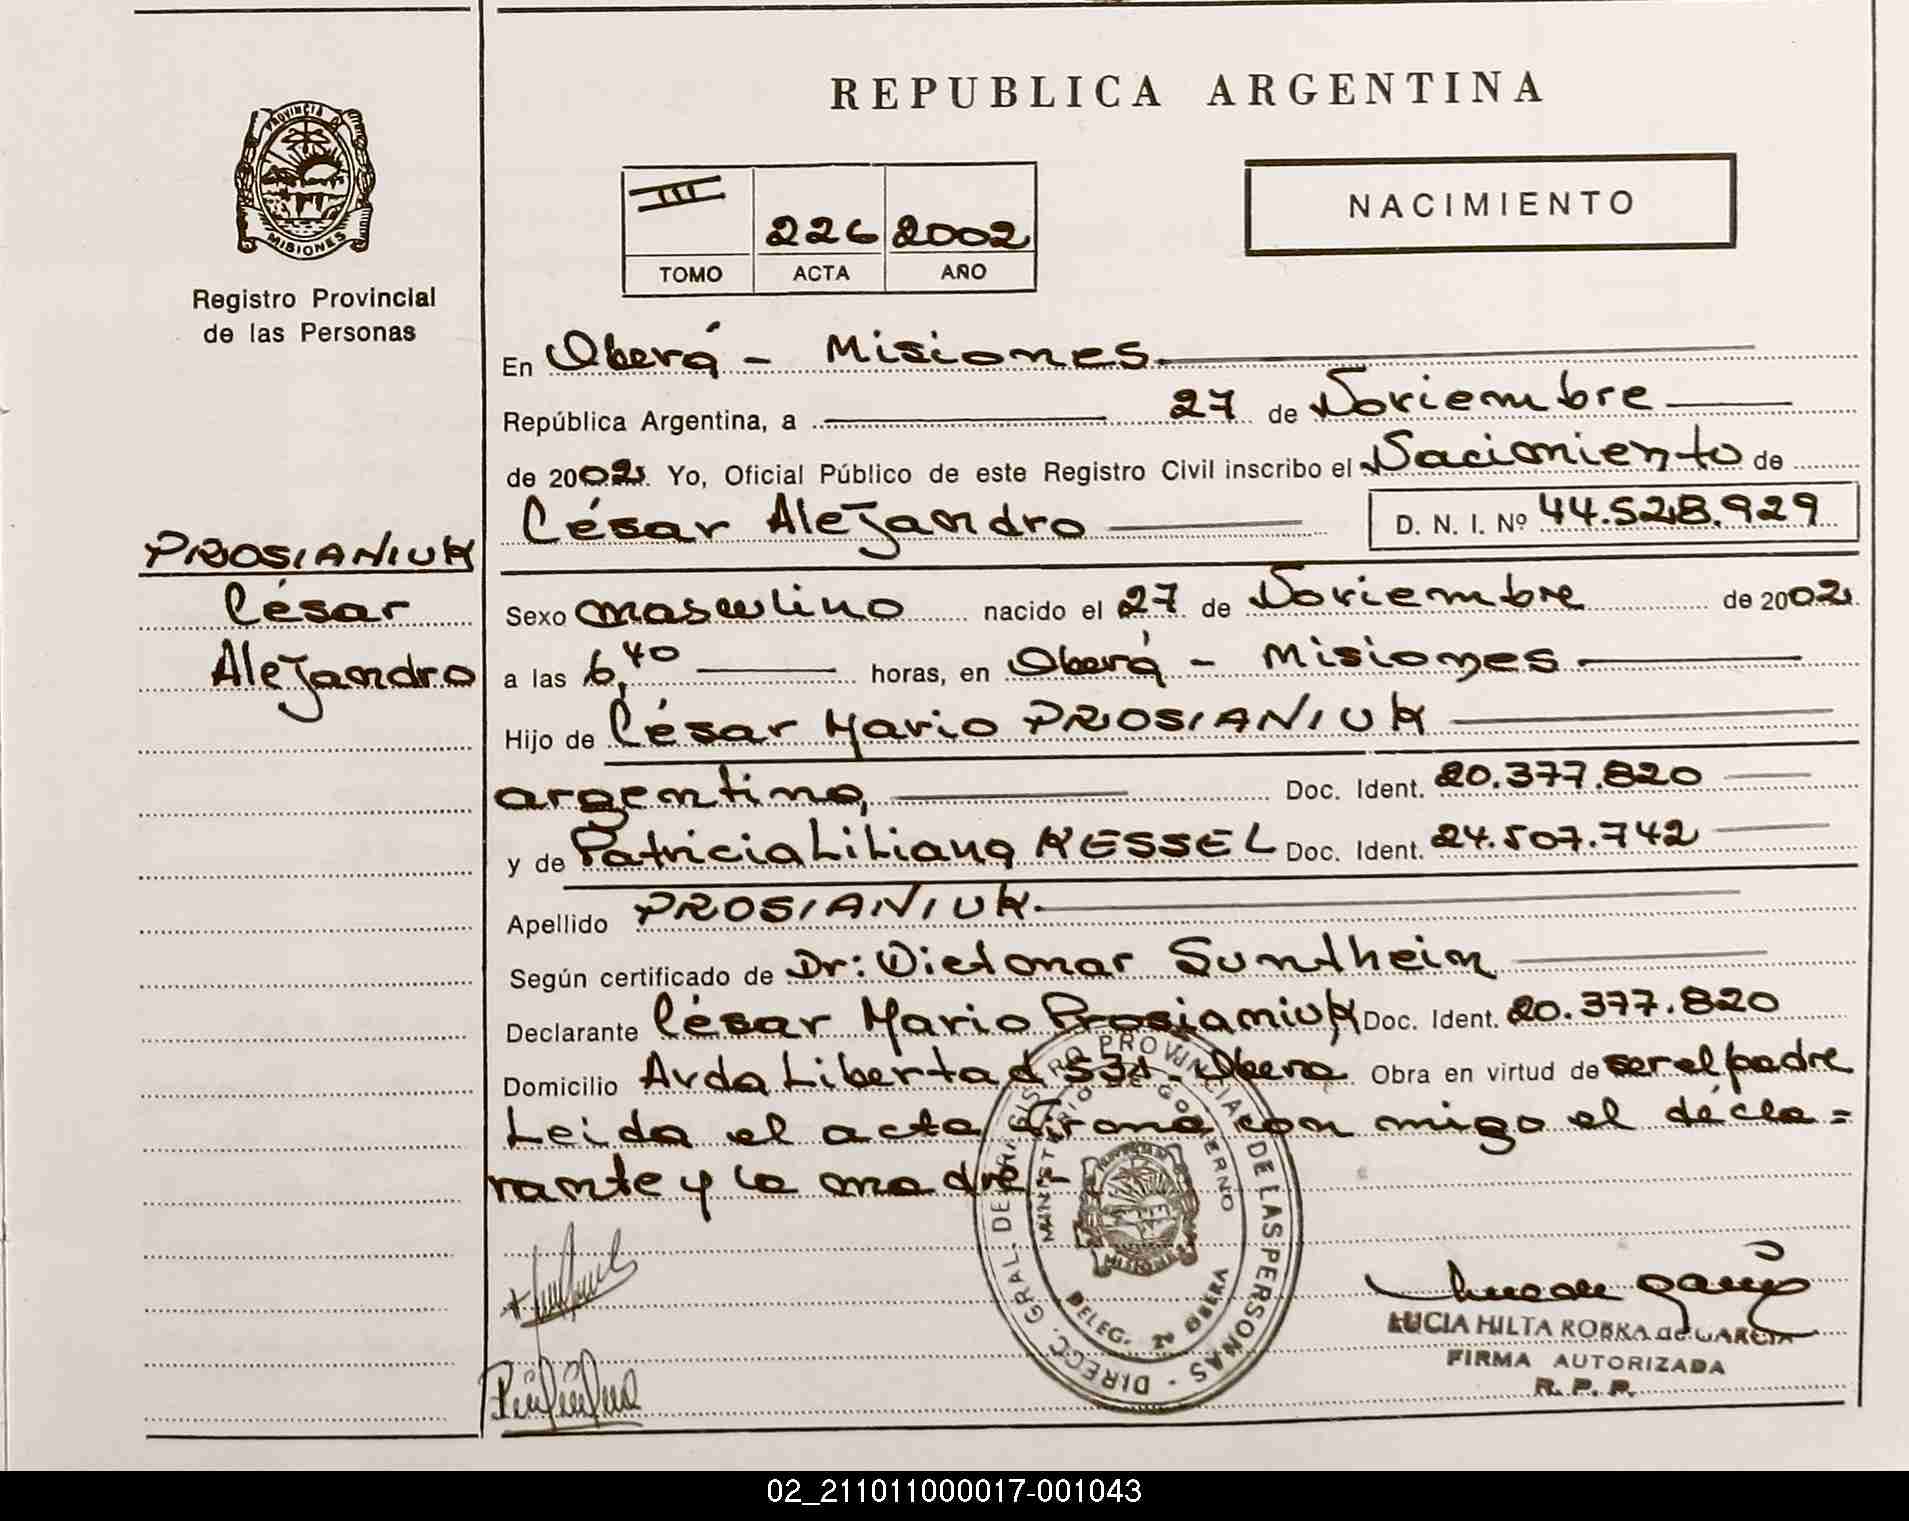 REPUBLICA ARGENTINA
PROVINCIA D
MISIONES
Registro Provincial
de las Personas
NACIMIENTO
226 2002
TOMO ACTA AÑO
En Oberá - Misiones.
República Argentina, a 27 de Noviembre
de 2002. Yo, Oficial Público de este Registro Civil inscribo el Nacimiento de
César Alejandro D. N. I. Nº 44.528.929
PROSIANIUK
César
Alejandro
Sexo masculino nacido el 27 de Noviembre de 2002
a las 6,40 horas, en Oberá - Misiones
Hijo de César Mario PROSIANIUK
argentino, Doc. Ident. 20.377.820
y de Patricia Liliana KESSEL Doc. Ident. 24.507.742
Apellido PROSIANIUK.
Según certificado de Dr: Dietmar Sundheim
Declarante César Mario Prosianiuk Doc. Ident. 20.377.820
Domicilio Avda Libertad - Oberá Obra en virtud de ser el padre
Leida el acta firma con migo el decla=
rante y la madre -
DIRECC. GRAL. DE REGISTRO PROVINCIAL DE LAS PERSONAS -
MINISTERIO DE GOBIERNO
MISIONES
DELEG. 2ª OBERA
LUCIA HILTA ROBKA de GARCIA
FIRMA AUTORIZADA
R. P. P.
02_211011000017-001043